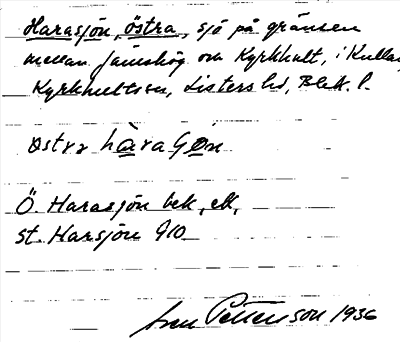 Harasjön, östra, sjö på gränsen
mellan Jämshög och Kyrkhult, i Kulla,
Kyrkhults sn, Listers hd, Blek. l.
östra hàragøn
Ö. Harasjön bek, ek,
St. Harsjön G10
Sven Pettersson 1936